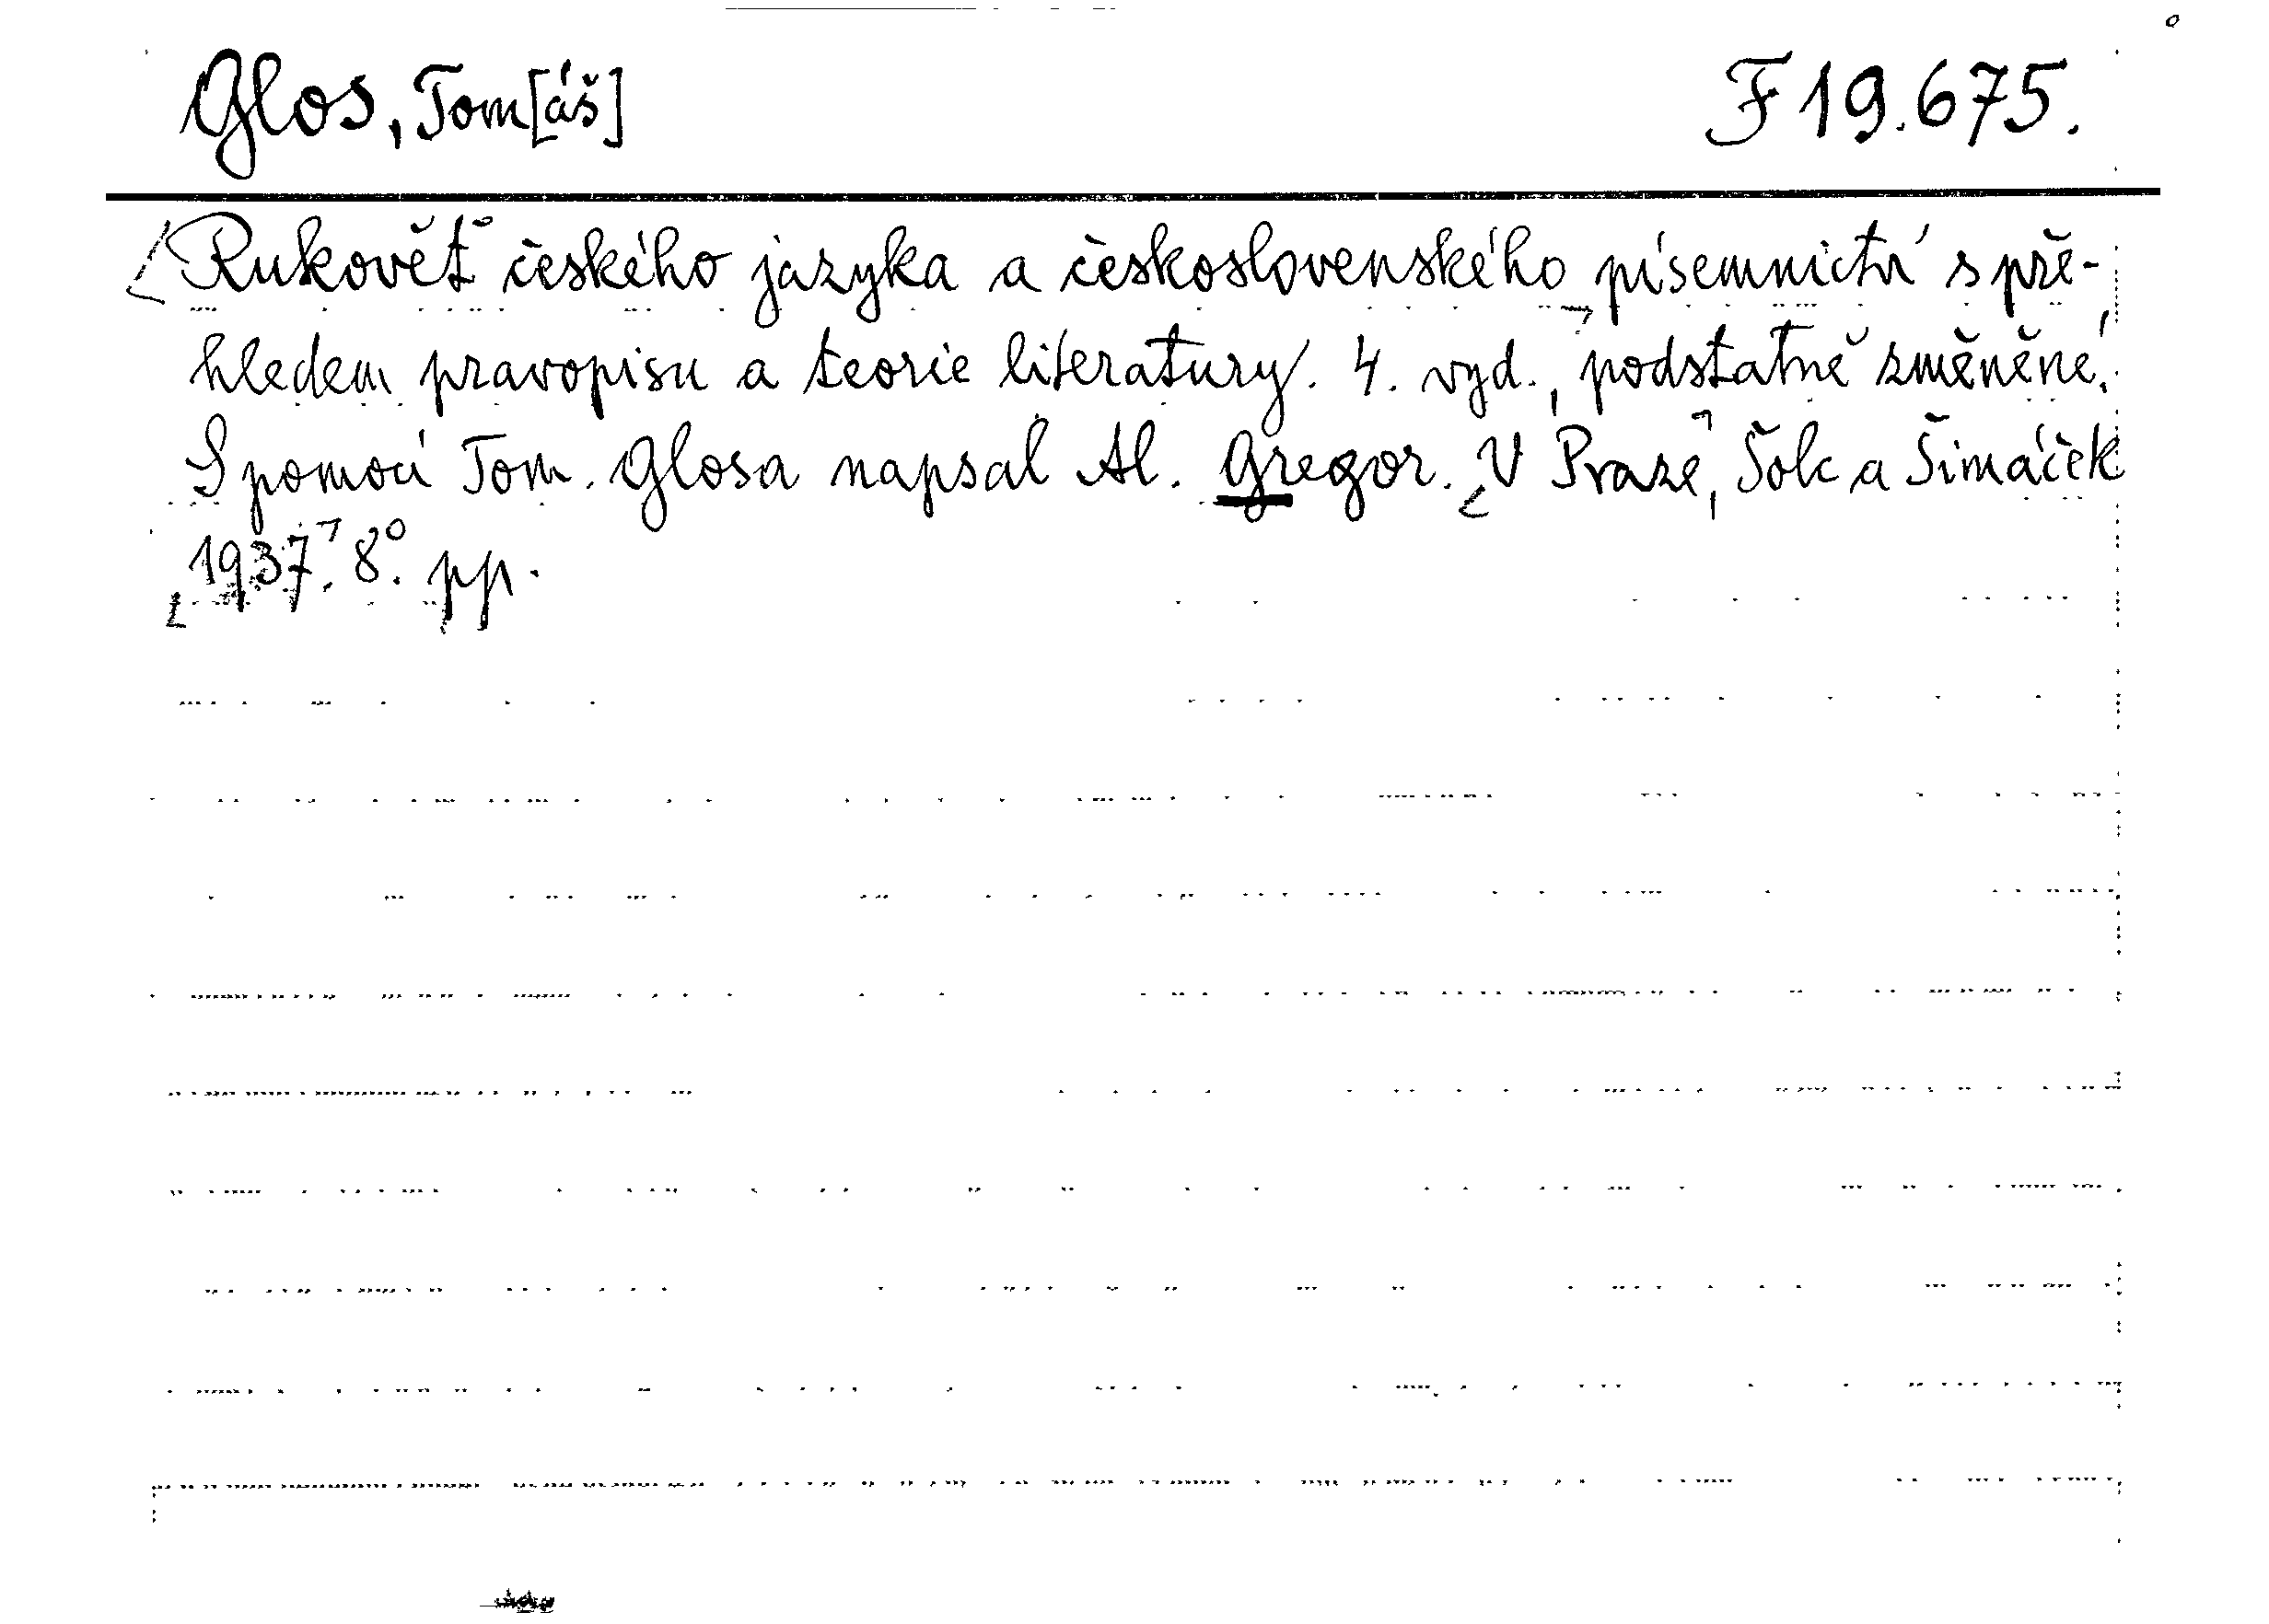 Glos, Tom[áš] F 19.675.
Rukověť českého jazyka a československého písemnictví s pře-
hledem pravopisu a teorie literatury. 4. vyd., podstatně změněné.
S pomocí Tom. Glosa napsal Al. Gregor. V Praze, Šolc a Šimáček
1937. 8°. pp.